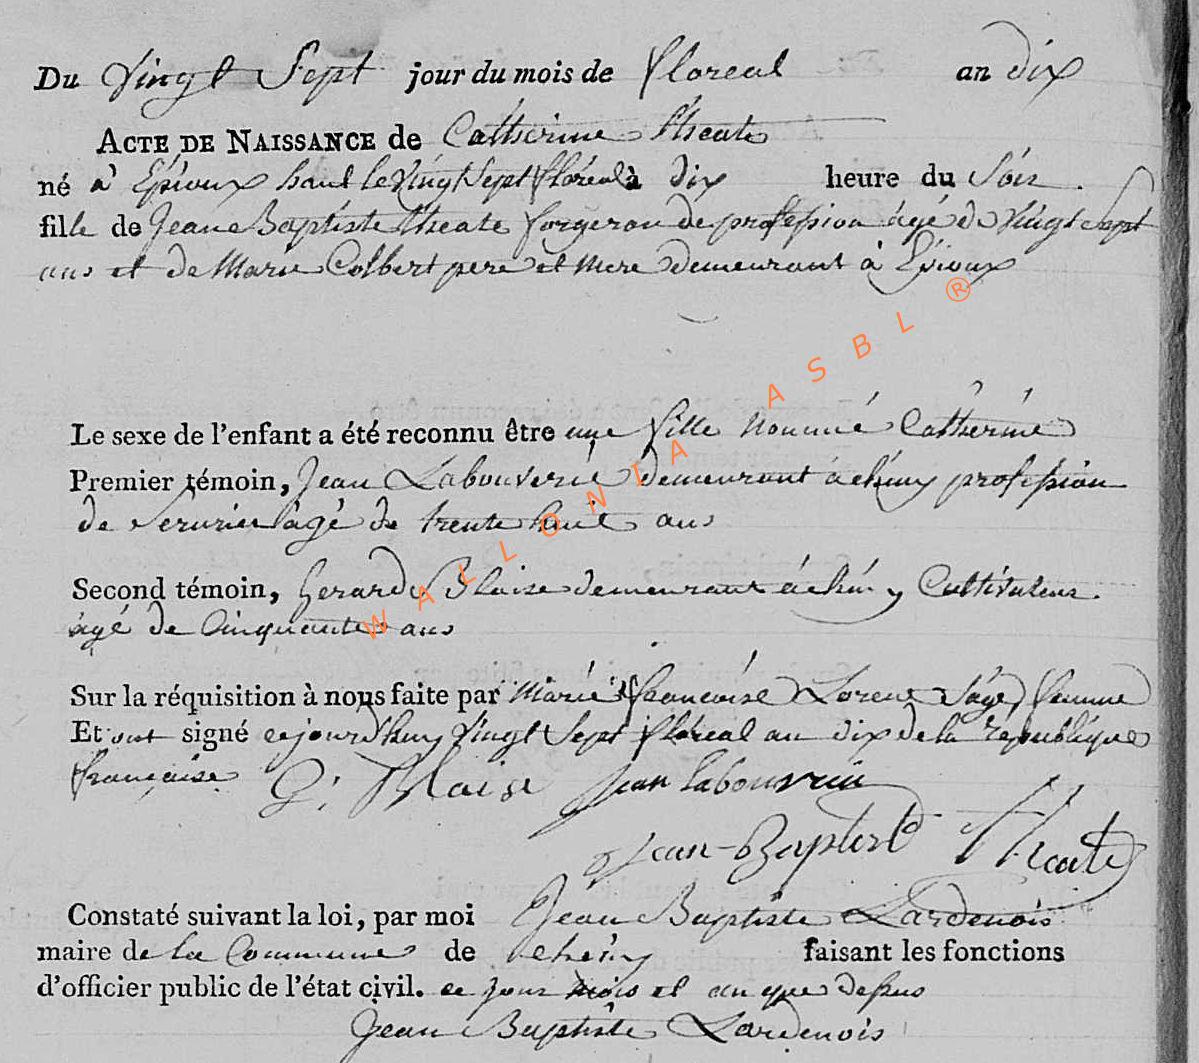 Du Vingt Sept jour du mois de floreal an dix
ACTE DE NAISSANCE de Catherine theate
né à Epioux haut le Vingt Sept floréal à dix heure du Soir.
fille de Jean Baptiste theate forgeron de profession âgé de Vingt Sept
ans et de Marie Colbert pere et mere demeurant à Epioux
Le sexe de l'enfant a été reconnu être une fille nommé Catherine
Premier témoin, Jean Labouverie demeurant à chiny profession
de Serurier âgé de trente huit ans
Second témoin, Gerard Blaise demeurant à chiny Cultivateur.
âgé de Cinquante ans
Sur la réquisition à nous faite par Marie françoise Lorent Sage femme
Et ont signé cejourdhuy Vingt Sept floreal an dix de la republique
française G: Blaise jean labouverie
Jean-Baptist Theate
Constaté suivant la loi, par moi Jean Baptiste Lardenois
maire de la Commune de chiny faisant les fonctions
d'officier public de l'état civil. ce jour mois et an que dessus
Jean Baptiste Lardenois
WALLONIA ASBL ®